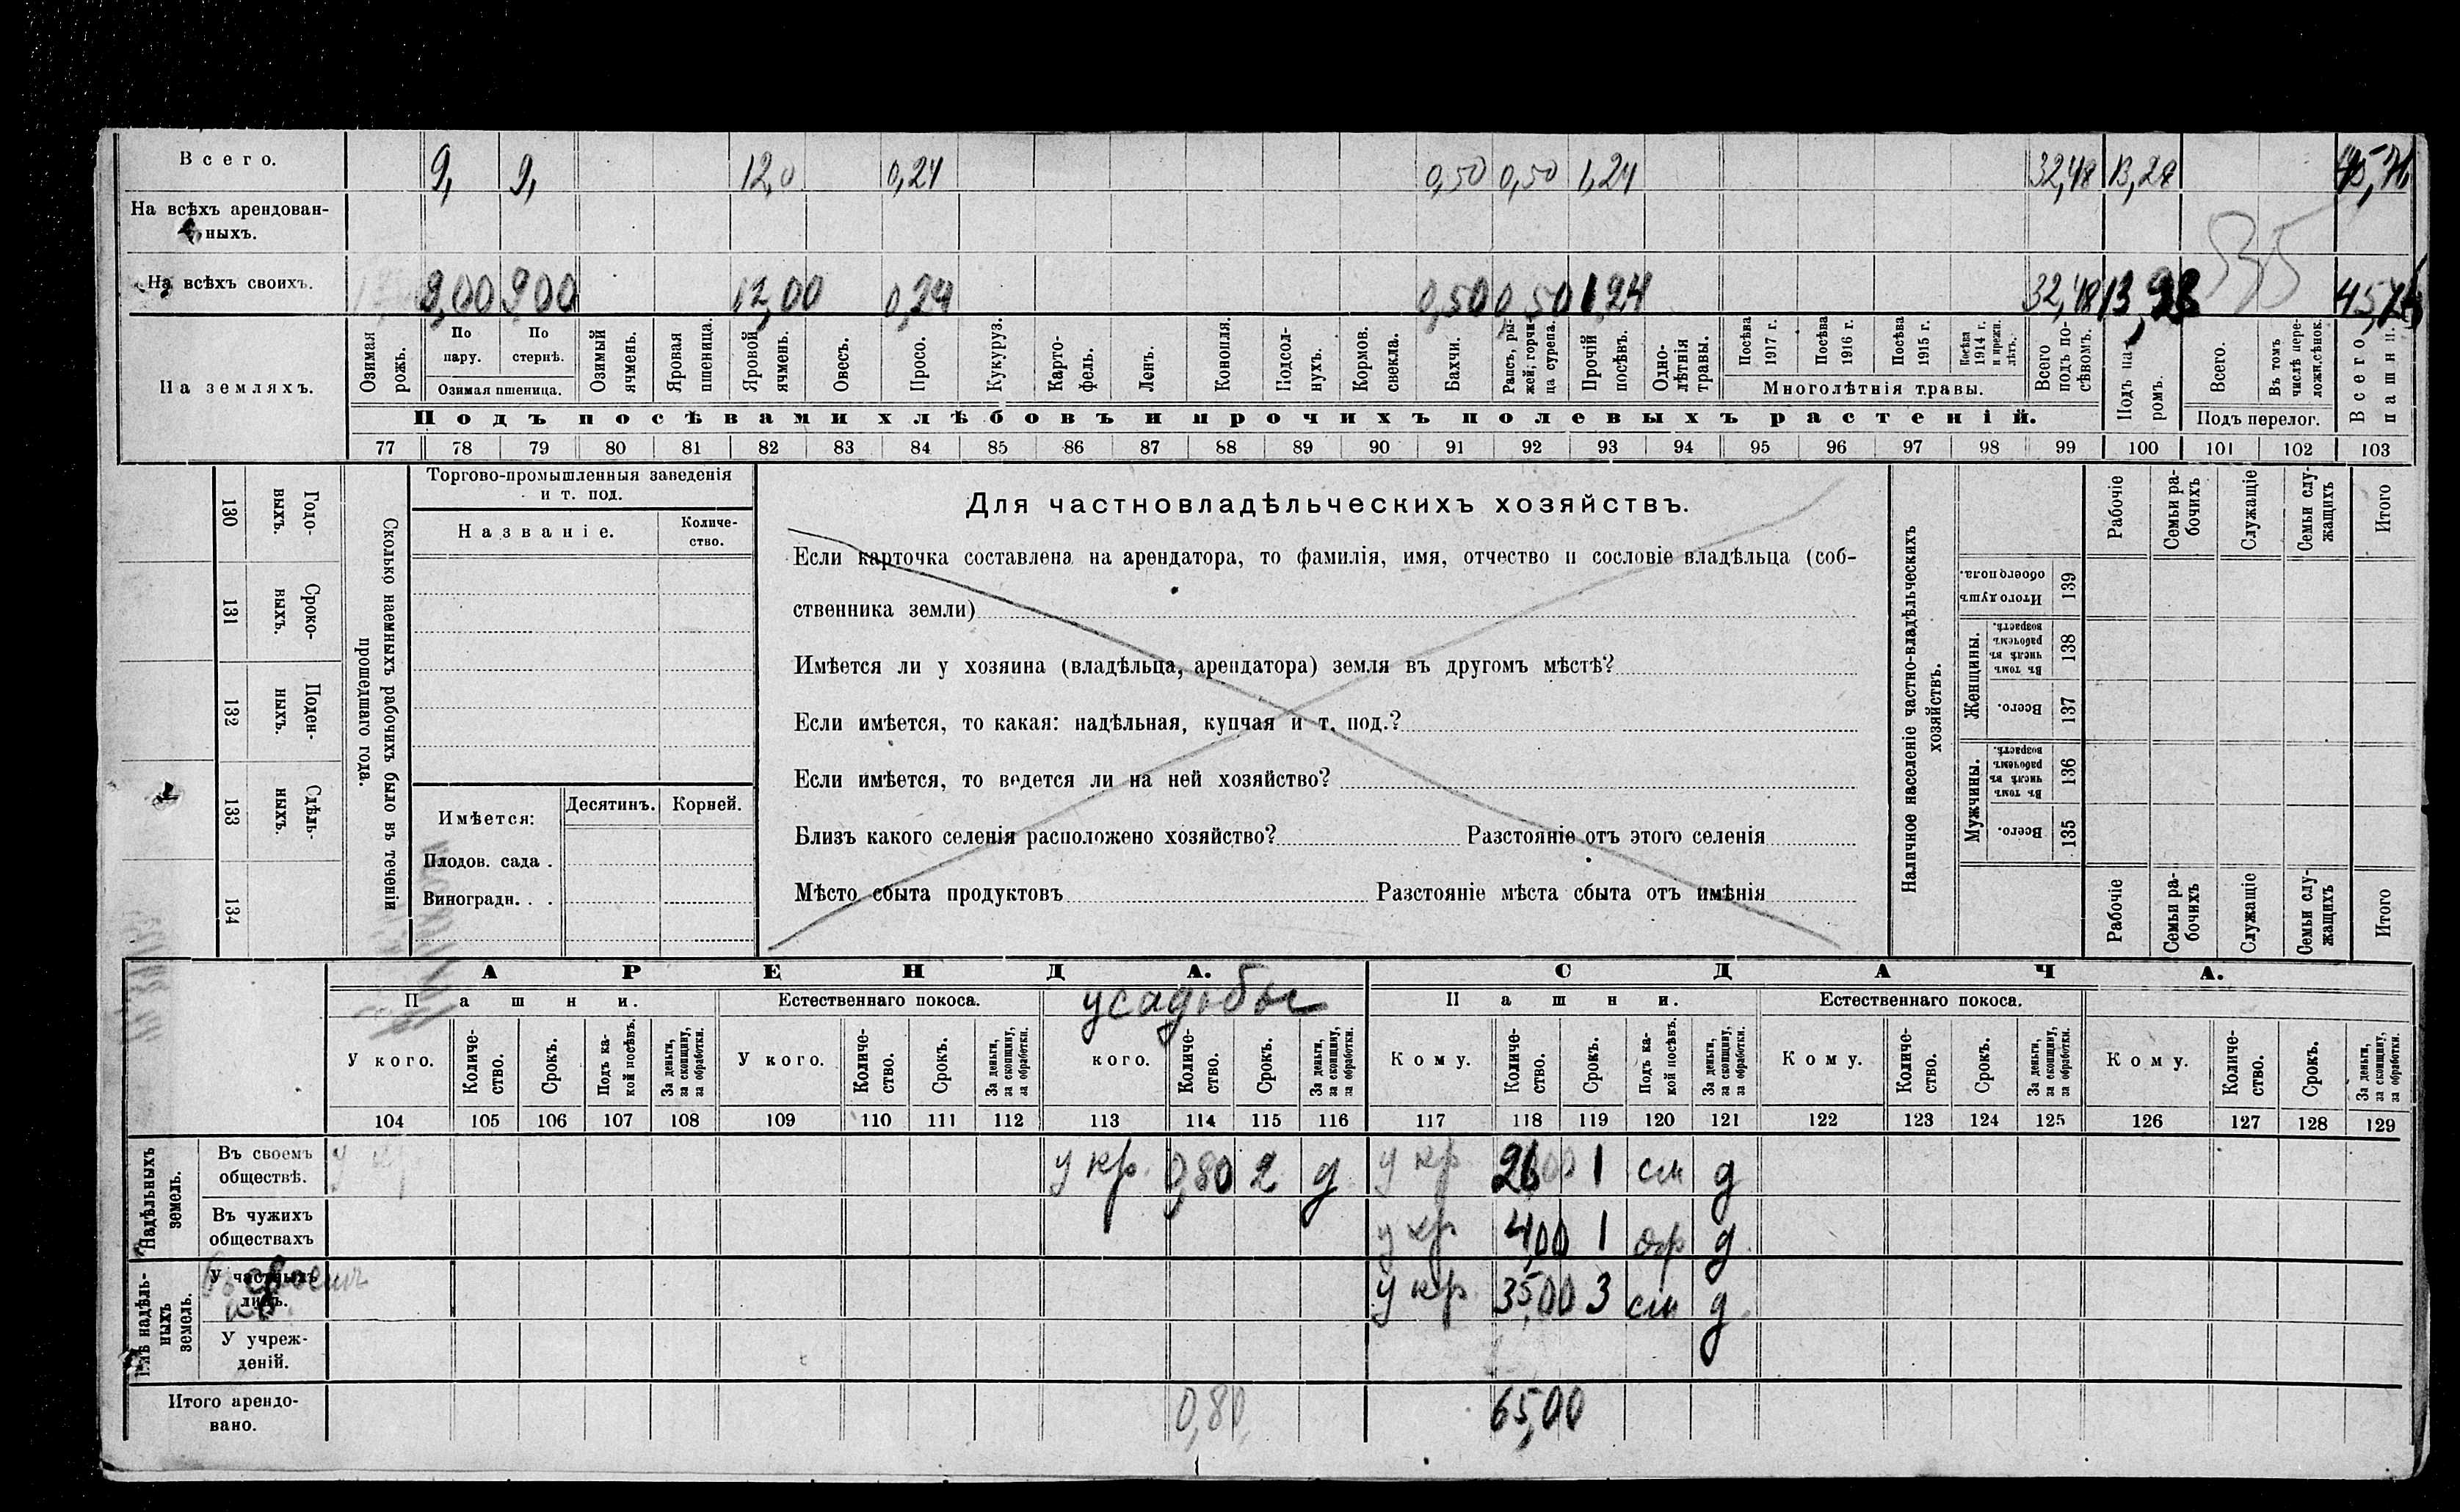 Всего. 9, 9, 12,0 0,24 0,50 0,50 1,24 32,48 13,28 45,76
На всѣхъ арендован-
ныхъ.
На всѣхъ своихъ. 9,00 9,00 12,00 0,24 0,50 0,50 1,24 32,48 13,28 45,76
На земляхъ.
Озимая рожь.
По пару.
По стернѣ.
Озимая пшеница.
Озимый ячмень.
Яровая пшеница.
Яровой ячмень.
Овесъ.
Просо.
Кукуруз.
Карто-
фель.
Ленъ.
Конопля.
Подсол-
нухъ.
Кормов.
свекла.
Бахчи.
Рапсъ, ры-
жей, горчи-
ца сурепа.
Прочій
посѣвъ.
Одно-
лѣтнія
травы.
Посѣва
1917 г.
Посѣва
1916 г.
Посѣва
1915 г.
Посѣва
1914 г.
и прежн.
лѣтъ.
Многолѣтнія травы.
Всего
подъ по-
сѣвомъ.
Подъ па-
ромъ.
Всего.
Въ томъ
числѣ пере-
ложн.сѣнок.
Подъ перелог.
Всего
пашни.
Подъ посѣвами хлѣбовъ и прочихъ полевыхъ растеній.
77 78 79 80 81 82 83 84 85 86 87 88 89 90 91 92 93 94 95 96 97 98 99 100 101 102 103
130 Годо-
выхъ.
131 Сроко-
выхъ.
132 Поден-
ныхъ.
133 Сдѣль-
ныхъ.
134
Сколько наемныхъ рабочихъ было въ теченіи
прошедшаго года.
Торгово-промышленныя заведенія
и т. под.
Названіе.
Количе-
ство.
Имѣется:
Десятинъ.
Корней.
Плодов. сада .
Виноградн. . .
Для частновладѣльческихъ хозяйствъ.
Если карточка составлена на арендатора, то фамилія, имя, отчество и сословіе владѣльца (соб-
ственника земли)
Имѣется ли у хозяина (владѣльца, арендатора) земля въ другомъ мѣстѣ?
Если имѣется, то какая: надѣльная, купчая и т. под.?
Если имѣется, то ведется ли на ней хозяйство?
Близъ какого селенія расположено хозяйство? Разстояніе отъ этого селенія
Мѣсто сбыта продуктовъ Разстояніе мѣста сбыта отъ имѣнія
Наличное населеніе частно-владѣльческихъ
хозяйствъ.
Рабочіе
Семьи ра-
бочихъ
Служащіе
Семьи слу-
жащихъ
Итого
Итого душъ
обоего пола.
139
Женщины.
Въ томъ
числѣ въ
рабочемъ
возрастѣ.
138
Всего.
137
Мужчины.
Въ томъ
числѣ въ
рабочемъ
возрастѣ.
136
Всего.
135
Рабочіе
Семьи ра-
бочихъ
Служащіе
Семьи слу-
жащихъ
Итого
АРЕНДА. СДАЧА.
Пашни. Естественнаго покоса. усадьбы Пашни. Естественнаго покоса.
У кого. Количе-
ство. Срокъ. Подъ ка-
кой посѣвъ. За деньги,
за скопщину,
за обработки.
У кого. Количе-
ство. Срокъ. За деньги,
за скопщину,
за обработки.
кого. Количе-
ство. Срокъ. За деньги,
за скопщину,
за обработки.
Кому. Количе-
ство. Срокъ. Подъ ка-
кой посѣвъ. За деньги,
за скопщину,
за обработки.
Кому. Количе-
ство. Срокъ. За деньги,
за скопщину,
за обработки.
Кому. Количе-
ство. Срокъ. За деньги,
за скопщину,
за обработки.
104 105 106 107 108 109 110 111 112 113 114 115 116 117 118 119 120 121 122 123 124 125 126 127 128 129
Надѣльныхъ
земель.
Въ своемъ
обществѣ. у кр. 0,80 2 д. у кр 26,00 1 см д
Въ чужихъ
обществахъ у кр 4,00 1 д.
Внѣ надѣль-
ныхъ
земель.
У частныхъ
лицъ. у кр. 35,00 3 см д.
У учреж-
деній.
Итого арендо-
вано. 0,80 65,00